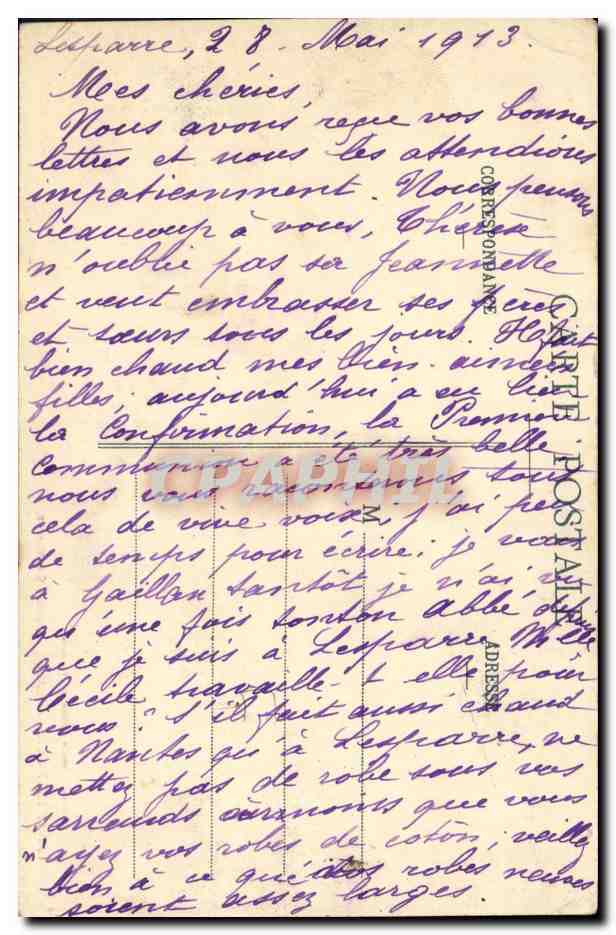 Lesparre, 28 Mai 1913.
Mes chéries,
Nous avons reçu vos bonnes
lettres et nous les attendions
impatiemment. Nous pensons
beaucoup à vous, Thérèse
n'oublie pas sa Jeannette
et veut embrasser ses frères
et sœurs tous les jours. Il fait
bien chaud mes bien-aimées
filles; aujourd'hui a eu lieu
la Confirmation, la Première
communion a été très belle
nous vous raconterons tout
cela de vive voix, j'ai peu
de temps pour écrire; je vais
à Gaillan tantôt je n'ai vu
qu'une fois tonton Abbé depuis
que je suis à Lesparre. Melle
Cécile travaille-t-elle pour
vous? S'il fait aussi chaud
à Nantes qu'à Lesparre, ne
mettez pas de robe sous vos
sarreaux à moins que vous
n'ayez vos robes de coton; veillez
bien à ce que vos robes neuves
soient assez larges.
CARTE POSTALE
CORRESPONDANCE
ADRESSE
M
CPARHIL